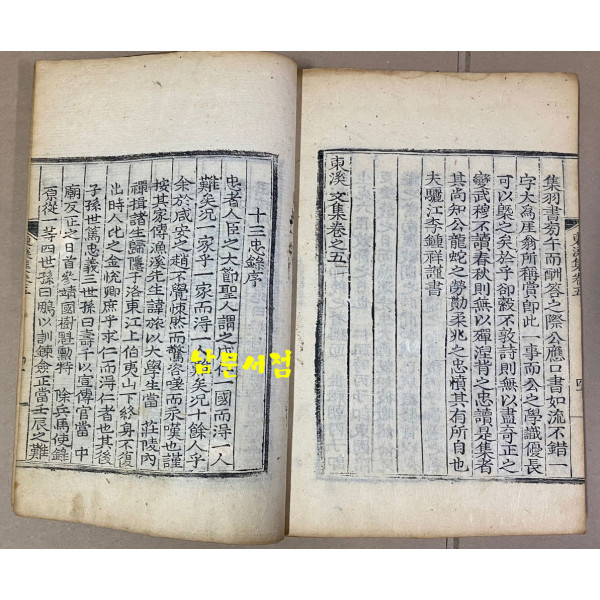 集羽書旁午而酬答之際公應口書如流不錯一
字大爲崖翁所稱賞卽此一事而公之學識優長
可以槩之矣於乎卻縠不敦詩則無以盡奇正之
變武穆不讀春秋則無以輝涅背之忠讀是集者
其尚知公龍蛇之勞勩柔兆之忠憤其有所自也
夫驪江李鍾祥謹書
東溪文集卷之五
東溪集卷五
四
十三忠錄序
忠者人臣之大勸聖人謂之 一國而得一人
難矣況一家乎一家而得一人難矣況十餘人乎
余於咸安之趙不覺悚然而驚咨嗟而永嘆也謹
按其家傳漁溪先生諱旅以大學生當 莊陵內
禪揖諸生歸隱于洛東江上伯夷山下終身不復
出時人比之金悅卿庶乎求仁而得仁者也其後
子孫世篤忠義三世孫曰壽千以宣傳官當 中
廟反正之日首參靖國樹勳勳 除兵馬使錄
原從 四世孫曰鵬以訓鍊僉正當壬辰之難
東溪集卷五
남문서점